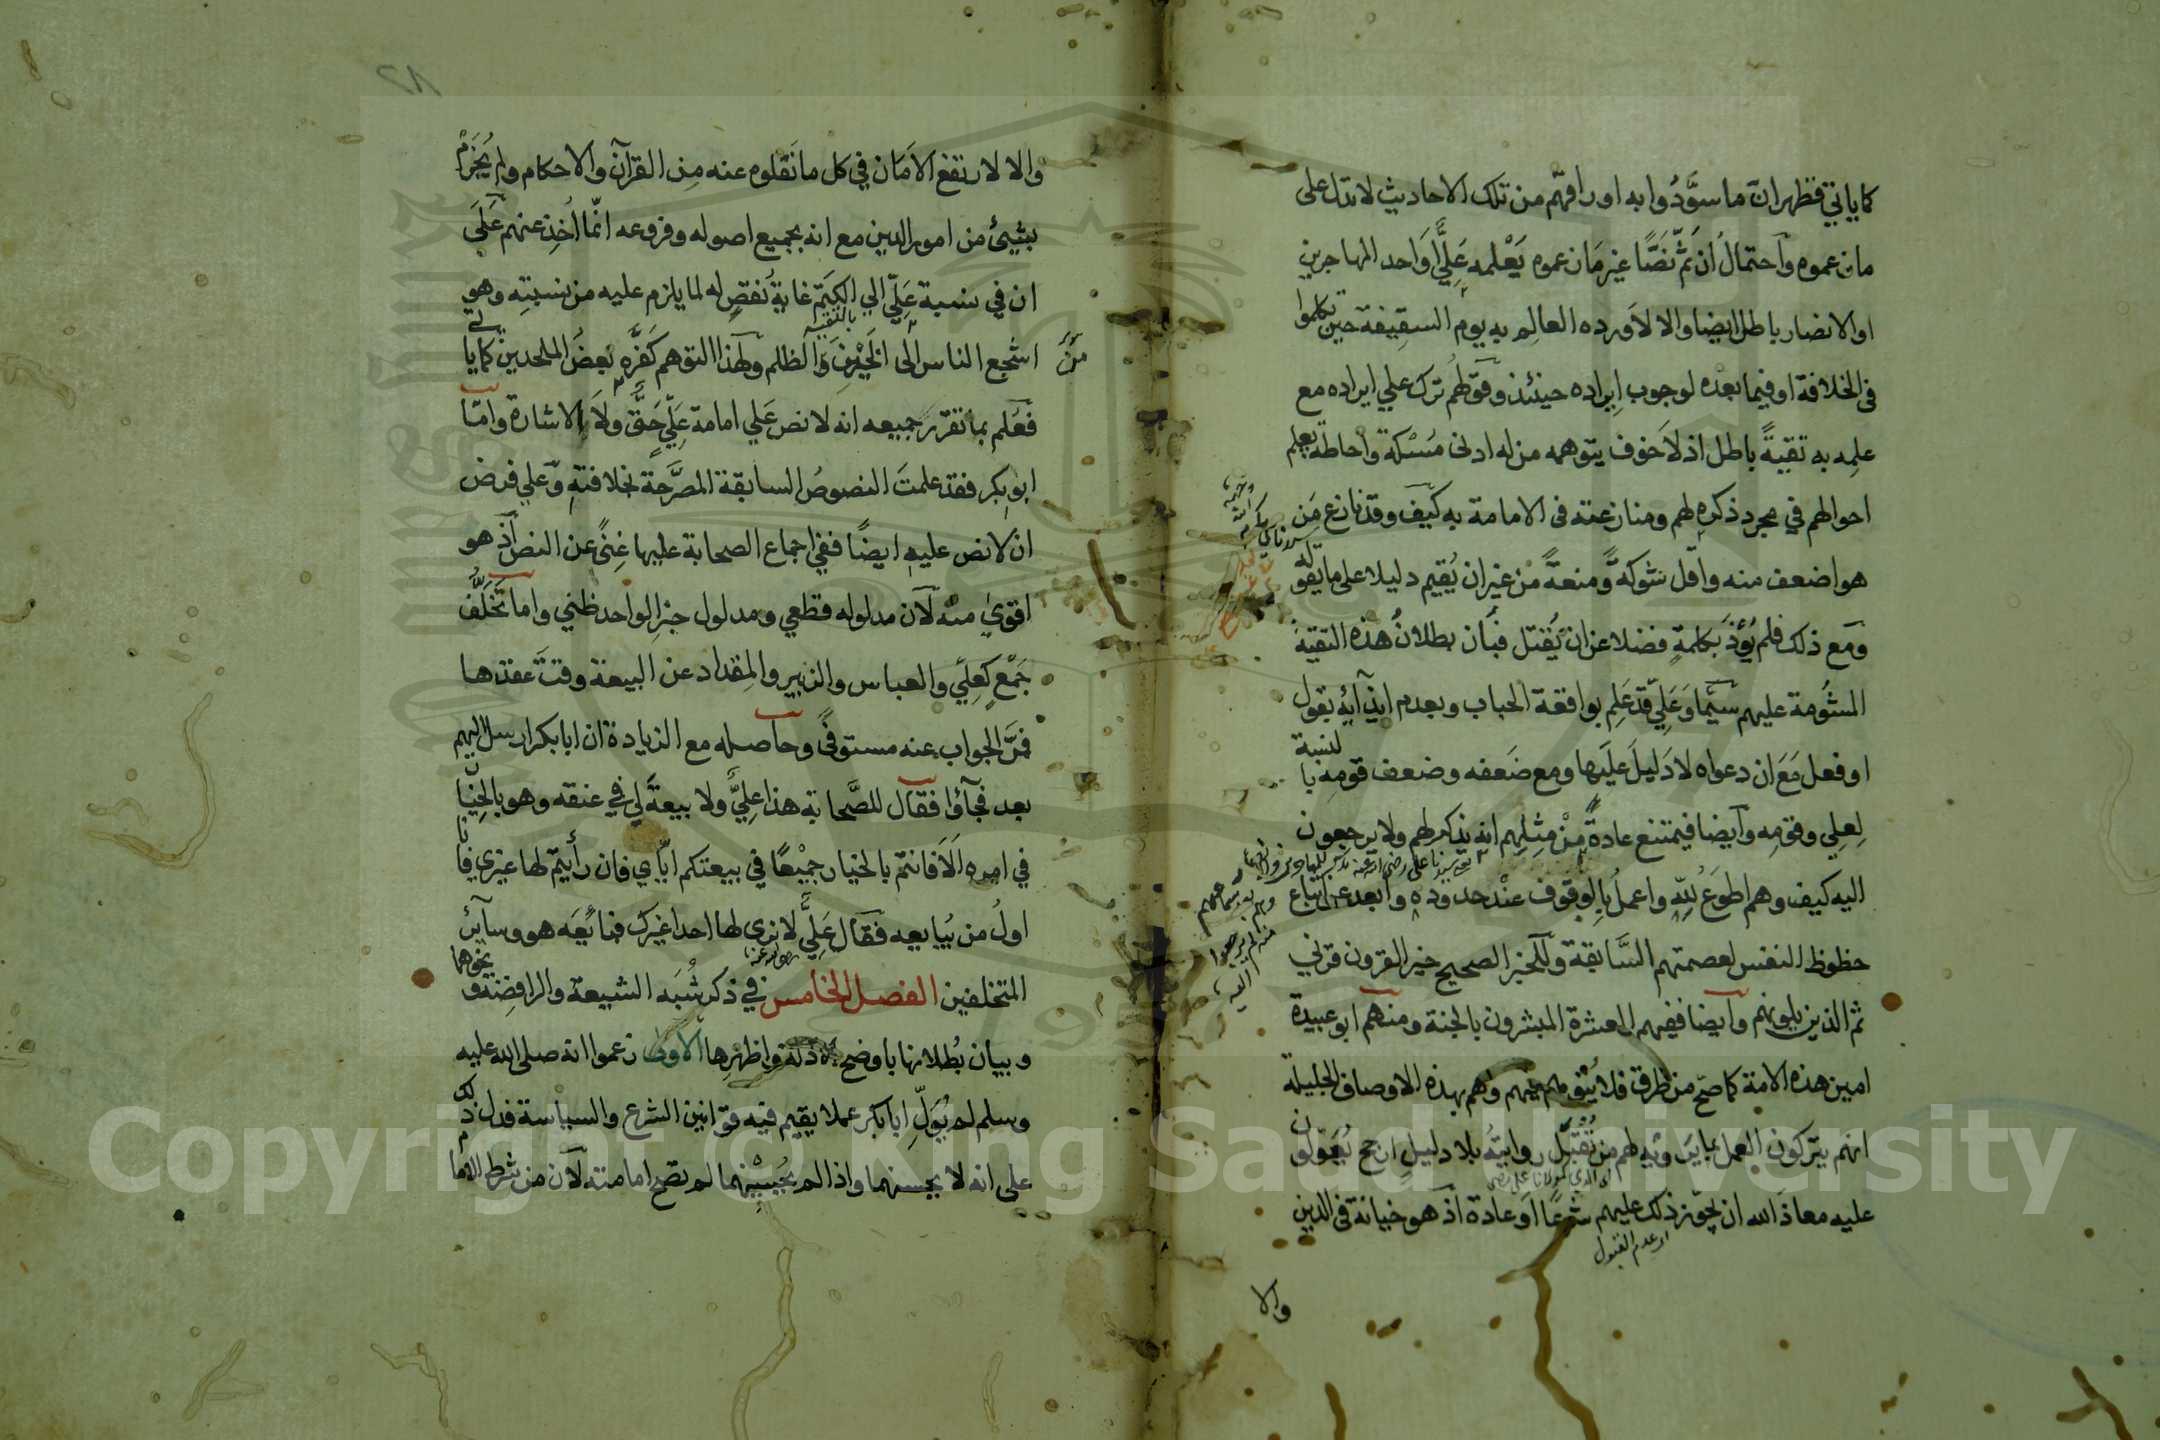 كما ياتي فظهر ان ما سوَّدُوا به اوراقهم من تلك الاحاديث لا تدل على
ما زعموه واحتمالُ اَن ثَمّ نَصًّا غير مَا زعموه يَعْلمه عَلِيٌّ اَوَاحد المهاجرين
او الانصار باطل ايضا والا لاَورده العالِم به يوم السقِيفة حين تكلموا
فى الخلافة او فيما بعده لوجوب اِيراده حينئذ وقولهُم ترك علي ايراده مع
علمِه به تقيةً باطل اذ لاَ خوف يتوهمه من له ادنى مُسْكة واحاطة بعلم
احوالهم في مجرد ذكره لهم ومنازعته فى الامامة به كيف وقد نازع مَن
هو اضعف منه واقل شوكةً ومنعةً من غير ان يُقيم دليلا على ما يقوله
ومع ذلك فلم يُؤْذَ بكلمةٍ فضلا عن ان يُقتل فبَان بطلانُ هذه التقية
المشُومة عليهم سيّما وَعَلِيّ قد عَلِم بواقعة الحباب وبعدم ايذآئِه بقول
او فعل مَعَ ان دعواه لا دَليلَ علَيها ومع ضَعفه وضعف قومِه بالنسبة
لِعلِي وقومِه وآيضا فيمتنع عادةً مِنْ مِثلِهم انه يذكر لهم ولا يرجعون
اليه كيف وهم اطوَعُ لِلّهِ واعملُ بالوقوف عنْد حدوده وابعد عن اتباع
حظوظ النفس لعصمتهم السَّابقة وللخبر الصحيح خير القرون قرني
ثم الذين يلونهم وآيضا ففيهم العشرة المبشرون بالجنة ومنهم ابو عبيدة
امين هذه الامة كما صحّ من طرق فلا يُتوهم فيهم وهم بهذه الاوصاف الجليلة
انهم يتركون العمل بما يَروِيهِ لهم من تُقْبَل روايتهُ بلا دليل ارجح يُعَوّلون
عليه معاذَ الله ان يجوز ذلك عليهم شرعًا اَو عادة اذ هو خيانة فى الدين
او عدم القبول
والا
والا لارتفع الاَمَان في كل ما نَقلوه عنه مِن القرآن والاحكام ولم يُجْزَمْ
بشيئ من امور الدين مع انه بجميع اصوله وفروعه انّما اُخِذ عنهم عَلَى
ان في نسبة عَلِيّ الي الكَتم غايةُ نُقصٍ له لما يلزم عليه من نسبتِه وهو
بالتقية
اشجع الناس الى الجُبْن وَالظلم ولهذا التوهم كَفَّره بعضُ الملحدين كما ياتي
فعُلم بما تقرر جميعه انه لا نص عَلي امامة عَلِيّ حَتَّى ولاَ بالاشارة وامّا
ابو بكر فقد علمتَ النصوصُ السابقة المصَرَّحة بخلافتهِ وَعلي فرض
ان لا نص عليه ايضًا ففي اجماع الصحابة عليها غِنًى عن النص اذ هو
اقوي منه لآن مدلوله قطعي ومدلول خبر الواحد ظني واما تَخَلُّف
جَمْعٍ كعلِيٍّ والعباس والزبير والمِقداد عن البيعة وقتَ عقدها
فمَرَّ الجواب عنه مستوفًى وحاصله مع الزيادة ان ابابكر ارسل اليهم
بعد فجآؤا فقال للصَّحابة هذا علِيٌّ ولا بيعةَ لي في عنقه وهو بالخِيَار
في امره اَلاَ فانتم بالخيار جميْعًا في بيعتكم ايّاي فان رأيتم لها غيري فانا
اولُ من يُبايعه فقال عَلِيٌّ لا نري لها احدا غيرك فبايَعَه هو وسآئر
المتخلفين الفصل الخامس في ذكر شُبَه الشيعة والرافضة ونحوهما
وبيان بُطلانها باوضح الادلة واظهرها الاولى زعموا انه صلى الله عليه
وسلم لم يُوَلِّ ابا بكر عملا يقيم فيه قوانين الشرع والسياسة فدل ذلك
على انه لا يحسنهما واذا لم يُحْسِنهما لم تصح امامته لآن من شرط الامام